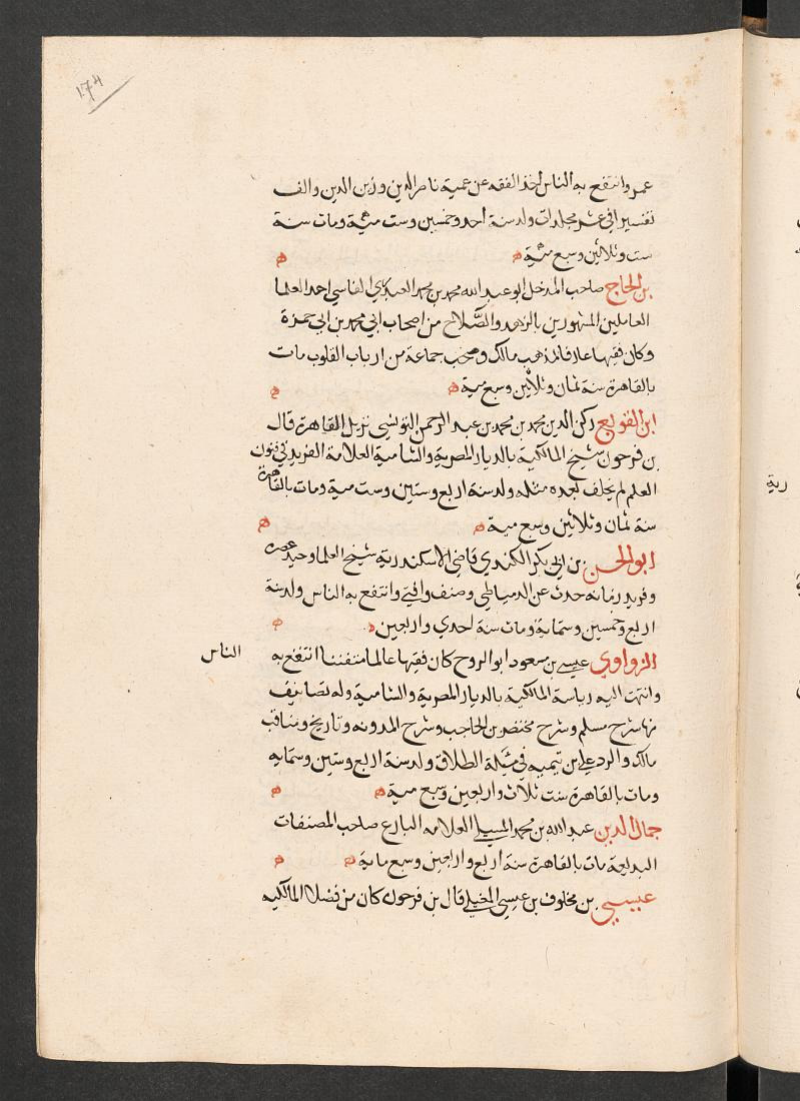 174
عمر وانتفع به الناس اخذ الفقه عن عميه ناصر الدين وزين الدين والف
تفسيرا في عشر مجلدات ولد سنة احد وخمسين وست مئية ومات سنة
ست وثلاثين وسبع مئية
بن الحاج صاحب المدخل ابو عبد الله محمد بن محمد العبدري الفاسي احد العلما
العاملين المشهورين بالزهد والصلاح من اصحاب ابي محمد بن ابي حمزة
وكان فقيها عارفا بمذهب مالك وصحب جماعة من ارباب القلوب مات
بالقاهرة سنة ثمان وثلاثين وسبع مية
ابن القوبع ركن الدين محمد بن محمد بن عبد الرحمن التونسي نزيل القاهرة قال
بن فرحون شيخ المالكية بالديار المصرية والشامية العلامة الفريد في فنون
العلم لم يخلف بعده مثله ولد سنة اربع وستين وست مية ومات بالقاهرة
سنة ثمان وثلاثين وسبع مية
ابو الحسن بن ابي بكر الكندي قاضي الاسكندرية شيخ العلما وحيد عصره
وفريد زمانه حدث عن الدمياطي وصنف وافتي وانتفع به الناس ولد سنة
اربع وخمسين وستماية ومات سنة احدي واربعين
الزواوي عيسي بن مسعود ابو الروح كان فقيها عالما متفننا انتفع به الناس
وانتهت اليه رياسة المالكية بالديار المصرية والشامية وله تصانيف
منها شرح مسلم وشرح مختصر بن الحاجب وشرح المدونه وتاريخ ومناقب
مالك والرد علي بن تيميه في مسئلة الطلاق ولد سنة اربع وستين وستمايه
ومات بالقاهرة سنت ثلاث واربعين وسبع مية
جمال الدين عبد الله بن محمد المسيلي العلامه البارع صاحب المصنفات
البديعة مات بالقاهرة سنة اربع واربعين وسبع ماية
عيسي بن مخلوف بن عيسي المغيلي قال بن فرحون كان من فضلا المالكيه
رية